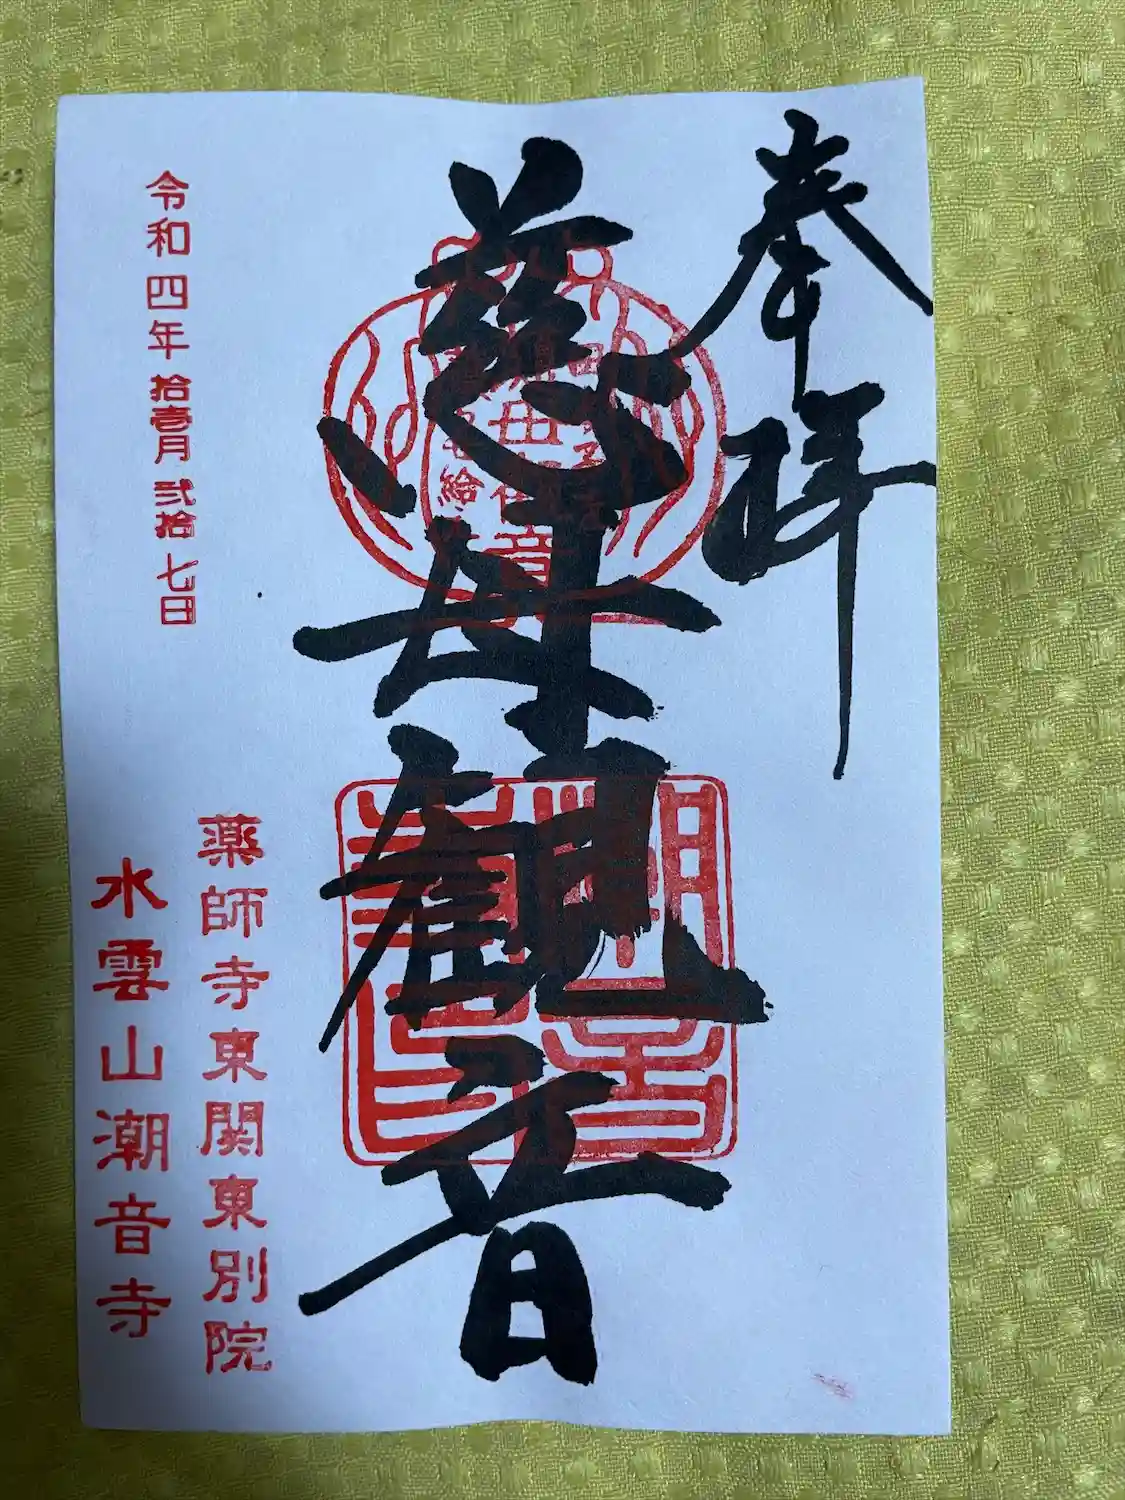 奉拝
慈母観音
薬師寺東関東別院
水雲山潮音寺
令和四年拾壱月弐拾七日